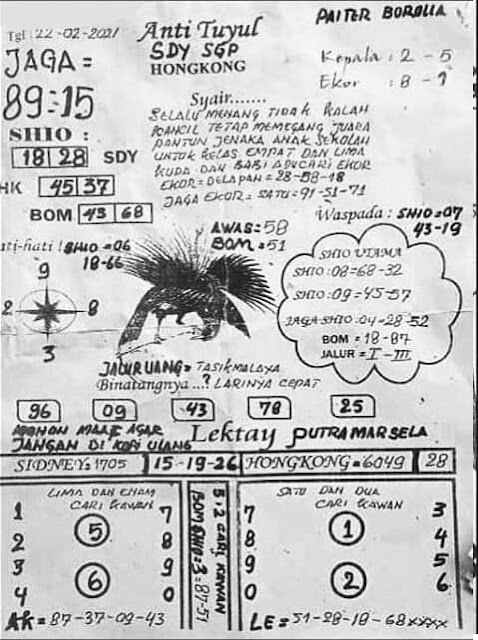 Tgl : 22-02-2021
Anti Tuyul
PAITER BOROLLA
SDY SGP
HONGKONG
JAGA =
89=15
Kepala : 2 - 5
Ekor : 8 - 1
Syair.......
SELALU MENANG TIDAK KALAH
POANCIL TETAP MEMEGANG JUARA
PANTUN JENAKA ANAK SEKOLAH
UNTUK KELAS EMPAT DAN LIMA
KUDA DAN BABI ADUCARI EKOR
EKOR = DELAPAN = 28-58-18
JAGA EKOR = SATU = 91-51-71
SHIO :
18 28 SDY
HK 45 37
BOM 43 68
Waspada : SHIO=07
43-19
AWAS = 58
BOM = 51
ati-hati ! SHIO = 06
18-66
9
2 8
3
SHIO UTAMA
SHIO : 08=68-32
SHIO : 09=45-57
JAGA SHIO : 04=28-52
BOM = 18-87
JALUR = I - III
JALUR UANG = TASIKMALAYA
Binatangnya ...? LARINYA CEPAT
96 09 43 78 25
MOHON MAAF AGAR
JANGAN DI KOPI ULANG
Lektay PUTRA MARSELA
SIDNEY= 1705 15-19-26 HONGKONG=6049 28
LIMA DAN ENAM
CARI KAWAN
1 7
2 5 8
3 9
4 6 0
AK = 87-37-09-43
5-2 CARI KAWAN
BOM SHIO=3=87-51
SATU DAN DUA
CARI KAWAN
7 3
8 1 4
9 5
0 2 6
LE = 51-28-18-68xxxx